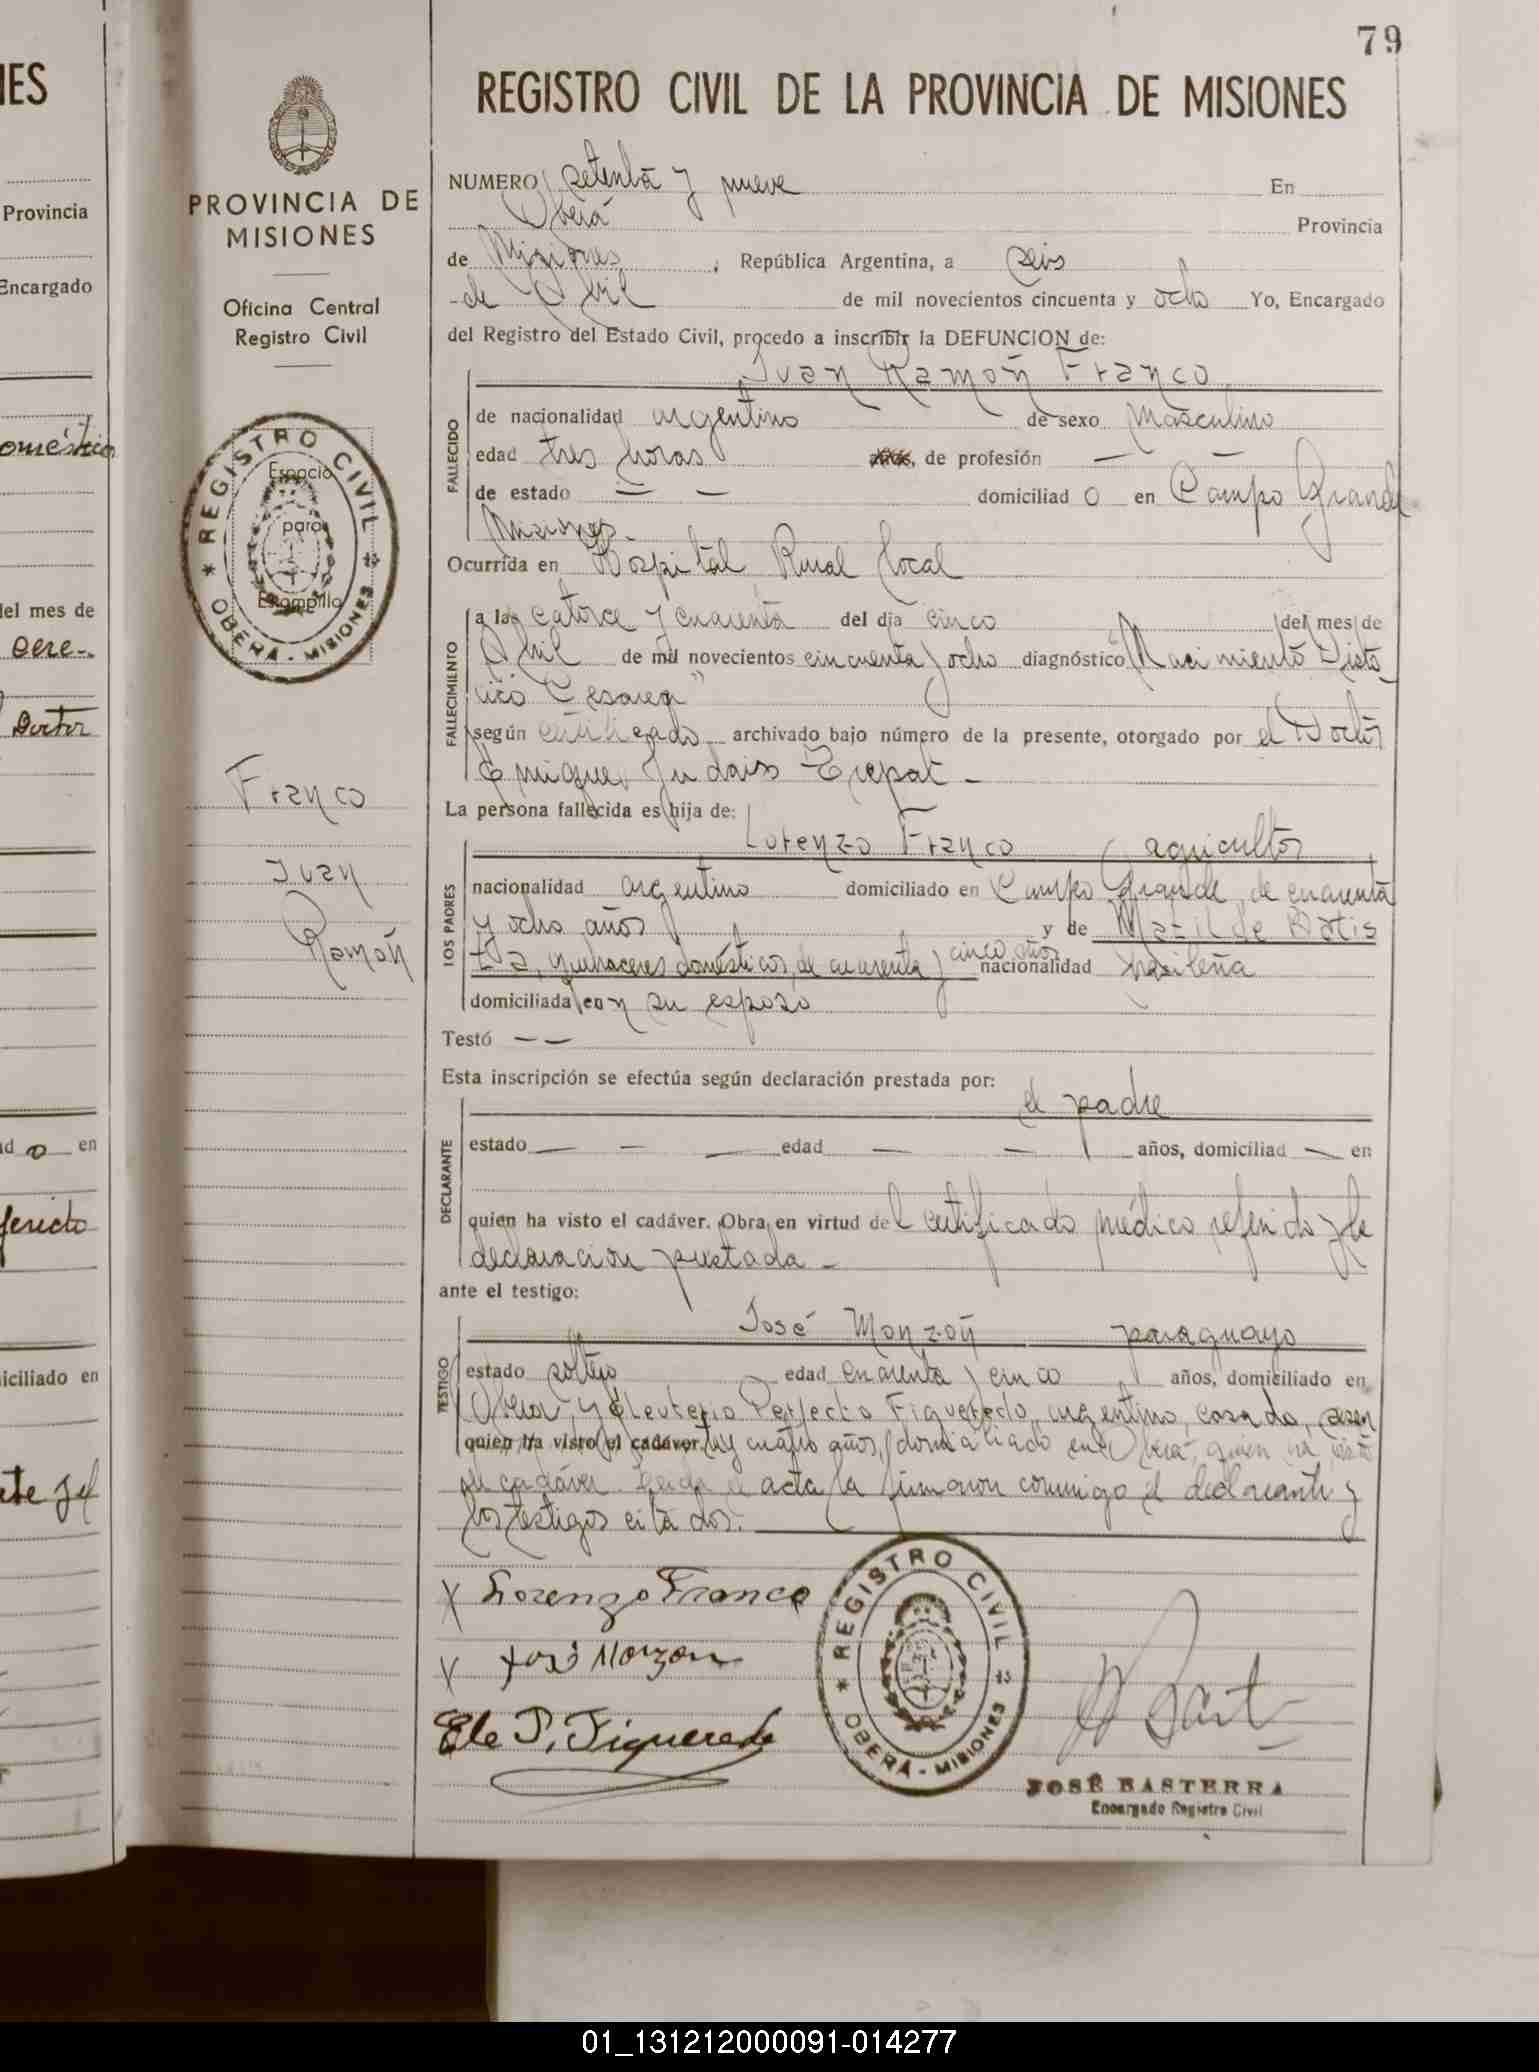 79
REGISTRO CIVIL DE LA PROVINCIA DE MISIONES
PROVINCIA DE
MISIONES
Oficina Central
Registro Civil
REGISTRO CIVIL
Espacio
para
Estampilla
OBERA - MISIONES
Franco
Juan
Ramón
NUMERO setenta y nueve En
Oberá Provincia
de Misiones, República Argentina, a seis
de Abril de mil novecientos cincuenta y ocho Yo, Encargado
del Registro del Estado Civil, procedo a inscribir la DEFUNCION de:
Juan Ramón Franco
FALLECIDO
de nacionalidad argentino de sexo Masculino
edad tres horas años, de profesión —
de estado — — domiciliad o en Campo Grande
Misiones.
Ocurrida en Hospital Rural local
FALLECIMIENTO
a las catorce y cuarenta del día cinco del mes de
Abril de mil novecientos cincuenta y ocho diagnóstico "Nacimiento Disto
cico Cesarea"
según certificado archivado bajo número de la presente, otorgado por el Doctor
Enrique Trepat -
La persona fallecida es hija de:
Lorenzo Franco agricultor
LOS PADRES
nacionalidad argentino domiciliado en Campo Grande, de cuarenta
y ocho años y de Matilde Batis
ta, quehaceres domésticos, de cuarenta y cinco años nacionalidad brasileña
domiciliada con su esposo
Testó — —
Esta inscripción se efectúa según declaración prestada por:
el padre
DECLARANTE
estado — — — edad — — años, domiciliad — en
quien ha visto el cadáver. Obra en virtud del certificado médico referido y la
declaración prestada -
ante el testigo:
José Monzón paraguayo
TESTIGO
estado soltero edad cuarenta y cinco años, domiciliado en
Oberá, y Eleuterio Perfecto Figueredo, argentino, casado, sesen
quien ha visto el cadáver. ta y cuatro años, domiciliado en Oberá, quien ha visto
el cadáver. Leida el acta la firmaron conmigo el declarante y
los testigos citados.
X Lorenzo Franco
X José Monzon
Ele P. Figueredo
REGISTRO CIVIL
OBERA - MISIONES
JOSÉ BASTERRA
Encargado Registro Civil
IES
Provincia
Encargado
del mes de
Doctor
ad o en
iciliado en
01_131212000091-014277